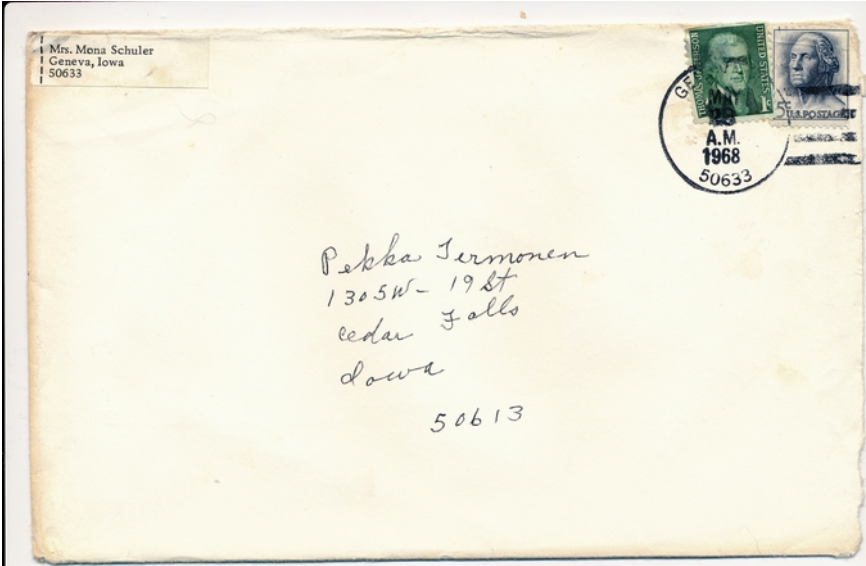 Mrs. Mona Schuler
Geneva, Iowa
50633
THOMAS JEFFERSON
UNITED STATES
1¢
5¢
U.S. POSTAGE
A.M.
1968
50633
Pekka Termonen
1305W- 19 St
Cedar Falls
Iowa
50613